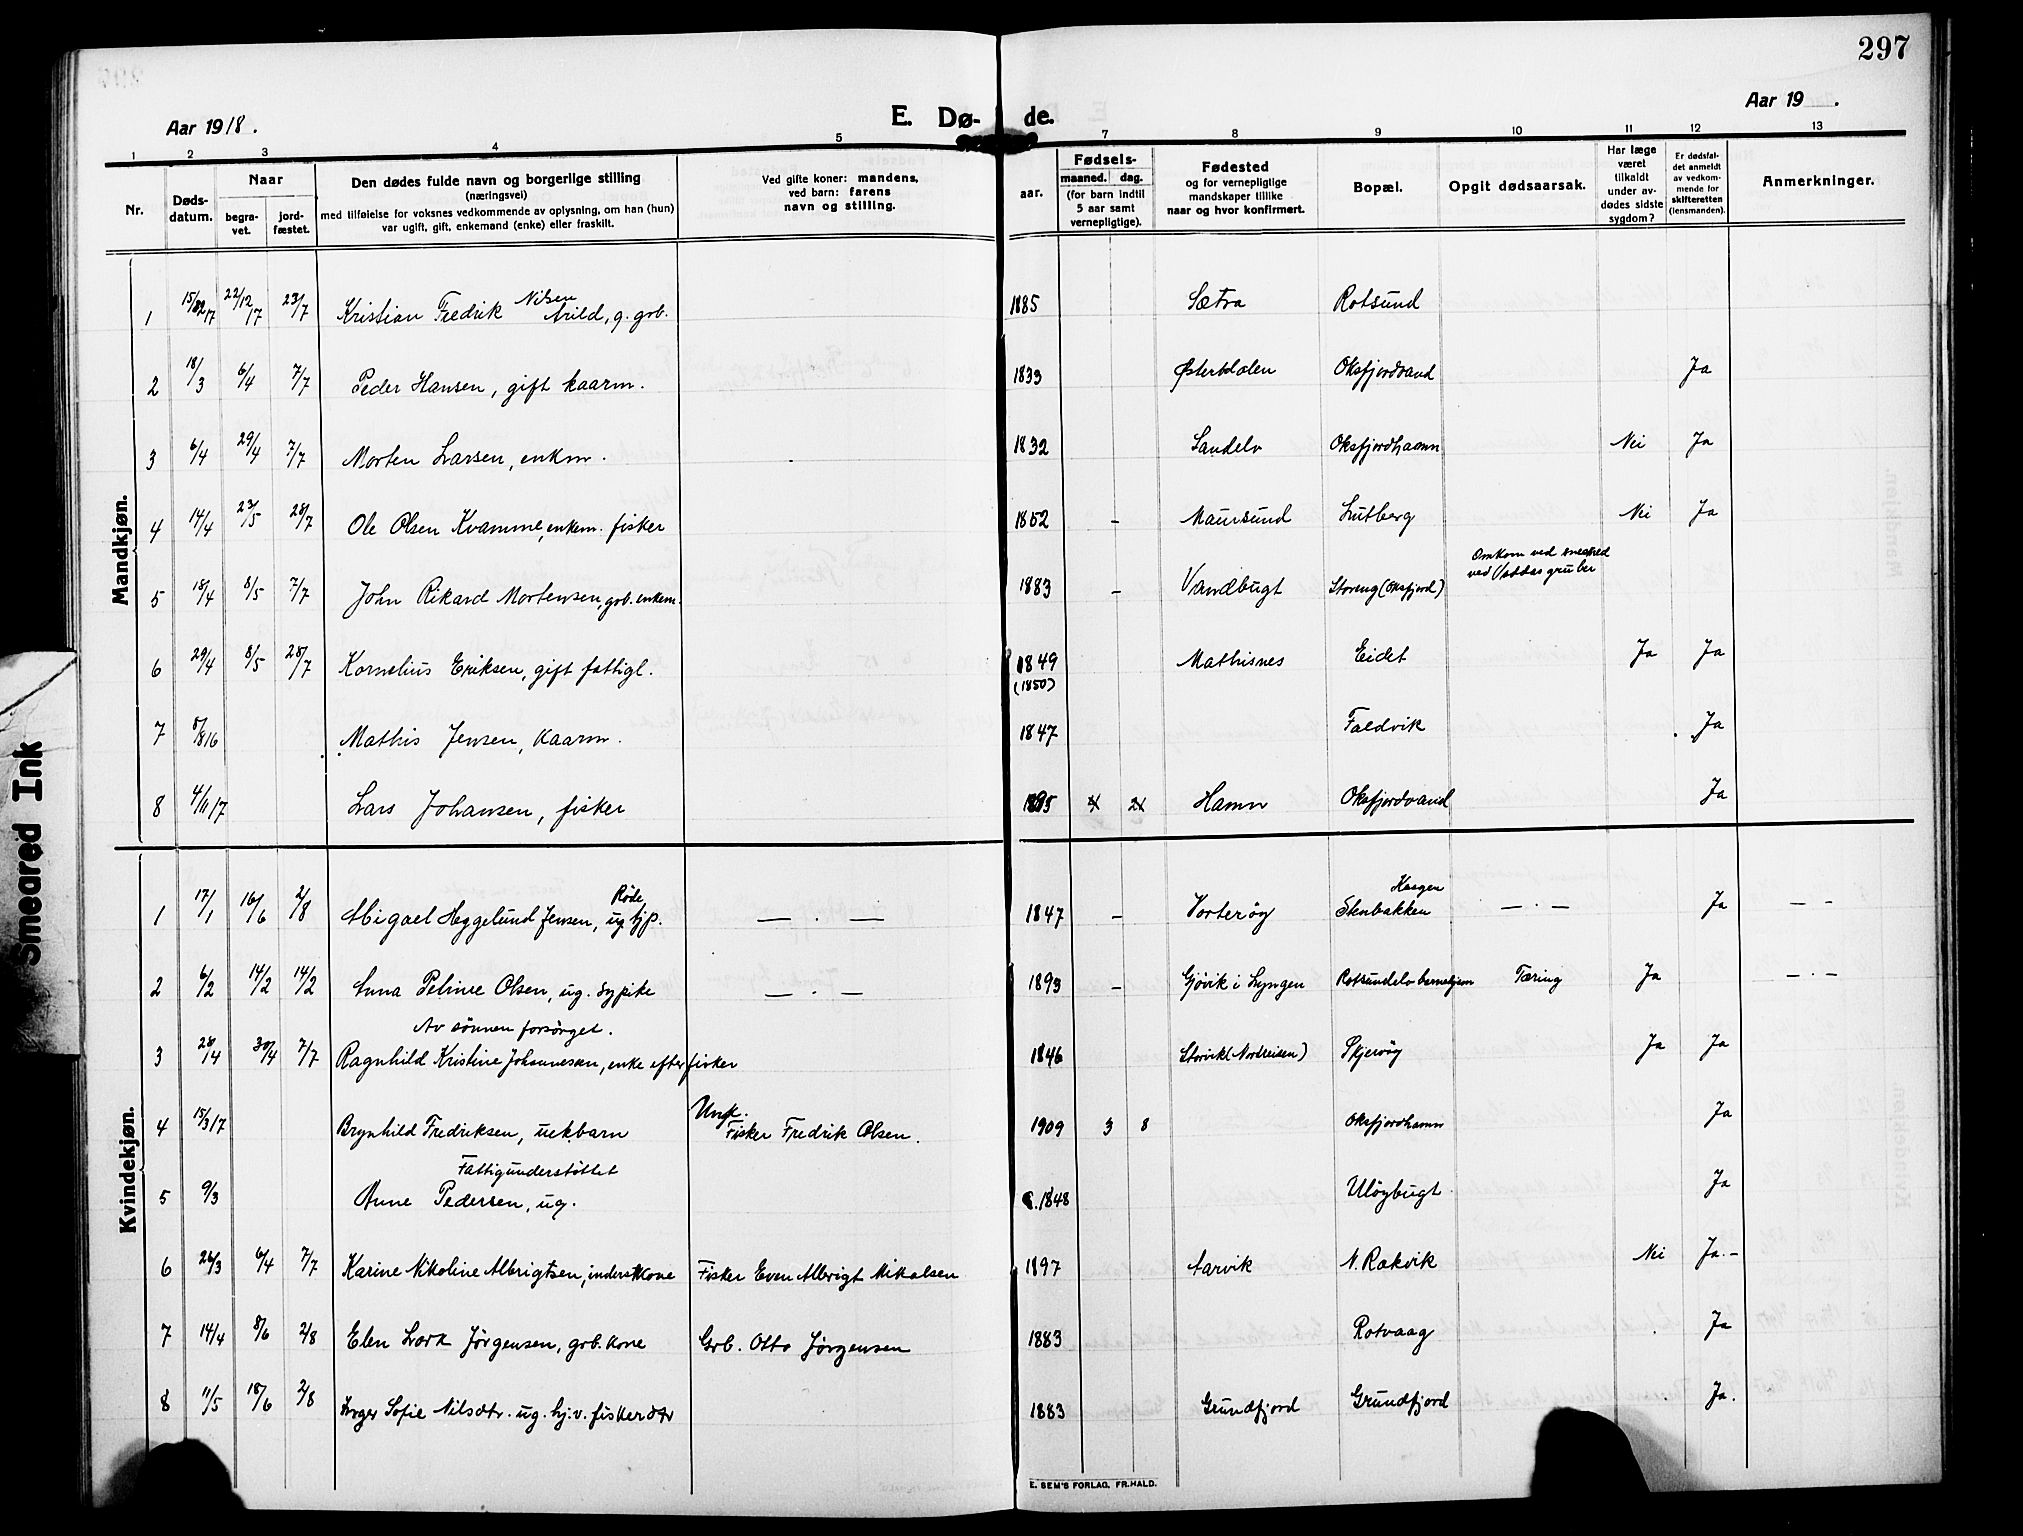 297
Aar 1918.
E. Dø- de.
Aar 19 .
1 2 3 4 5 7 8 9 10 11 12 13
Nr.
Døds-
datum.
Naar
begra-
vet.
jord-
fæstet.
Den dødes fulde navn og borgerlige stilling
(næringsvei)
med tilføielse for voksnes vedkommende av oplysning, om han (hun)
var ugift, gift, enkemand (enke) eller fraskilt.
Ved gifte koner: mandens,
ved barn: farens
navn og stilling.
Fødsels-
aar.
maaned. dag.
(for barn indtil
5 aar samt
vernepligtige).
Fødested
og for vernepligtige
mandskaper tillike
naar og hvor konfirmert.
Bopæl.
Opgit dødsaarsak.
Har læge
været
tilkaldt
under av-
dødes sidste
sygdom?
Er dødsfal-
det anmeldt
av vedkom-
mende for
skifteretten
(lensmanden).
Anmerkninger.
Mandkjøn.
1 22/12 17 23/7 Kristian Fredrik Nilsen Arild, g. grb. 1885 Sætra Rotsund
2 18/3 6/4 7/7 Peder Hansen, gift kaarm. 1833 Østerdalen Oksfjordvand Ja
3 6/4 29/4 7/7 Morten Larsen, enkm. 1832 Sandelv Oksfjordhamn Nei Ja
4 14/4 23/5 28/7 Ole Olsen Kvamme, enkem. fisker 1852 - Maursund Lutberg Nei Ja
5 18/4 8/5 7/7 John Rikard Mortensen, grb. enkem. 1883 - Vandbugt Storeng (Oksfjord) Omkom ved sneskred
ved Vaddas gruber
6 29/4 8/5 28/7 Kornelius Eriksen, gift fattigl. 1849 Mathisnes Eidet Ja Ja
(1850)
7 8/8 16 Mathis Jensen, kaarm. 1847 Faldvik Ja
8 4/11 17 Lars Johansen, fisker 1895 Hamn Oksfjordvand Ja
Kvindekjøn.
1 17/1 16/6 2/8 Abigael Heggelund Jensen, Røde ug. hjp. — . — 1847 - Vorterøy Kaagen
Stenbakken — . — Ja — -
2 6/2 14/2 14/2 Anna Petrine Olsen, ug. sypike — . — 1893 - Gjøvik i Lyngen Rotsundelv barnehjem Tæring Ja — . —
Av sønnen forsørget.
3 28/4 30/4 7/7 Ragnhild Kristine Johannesen, enke efter fisker 1846 Storvik (Nordreisen) Skjervøy Ja Ja
4 15/3 17 Brynhild Fredriksen, uekbarn Ungk.
Fisker Fredrik Olsen. 1909 3 8 Oksfjordhamn Ja
Fattigunderstøttet
5 9/3 Anne Pedersen, ug. c. 1848 Uløybugt Ja
6 26/3 6/4 7/7 Karine Nikoline Albrigtsen, inderst kone Fisker Even Albrigt Mikalsen 1897 Aarvik N. Rakvik Nei Ja. -
7 14/4 8/6 2/8 Elen Lork Jørgensen, grb. kone Grb. Otto Jørgensen 1883 Rotvaag Ja
8 11/5 18/6 2/8 Inger Sofie Nilsdtr. ug. hj.v. fiskerdtr 1883 Grundfjord Grundfjord Ja.
E. SEM'S FORLAG, FR.HALD.
Smeared Ink